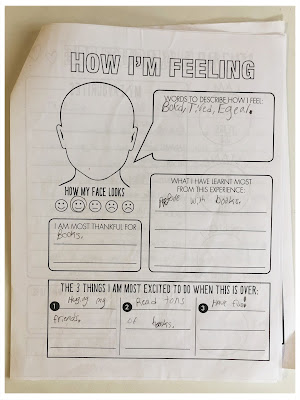 HOW I'M FEELING
WORDS TO DESCRIBE HOW I FEEL:
Bord, Tired, Egeal.
HOW MY FACE LOOKS
WHAT I HAVE LEARNT MOST
FROM THIS EXPERIENCE:
with books.
I AM MOST THANKFUL FOR
Books.
THE 3 THINGS I AM MOST EXCITED TO DO WHEN THIS IS OVER:
1 Huging my
friends.
2 Read tons
of books.
3 Have fun!